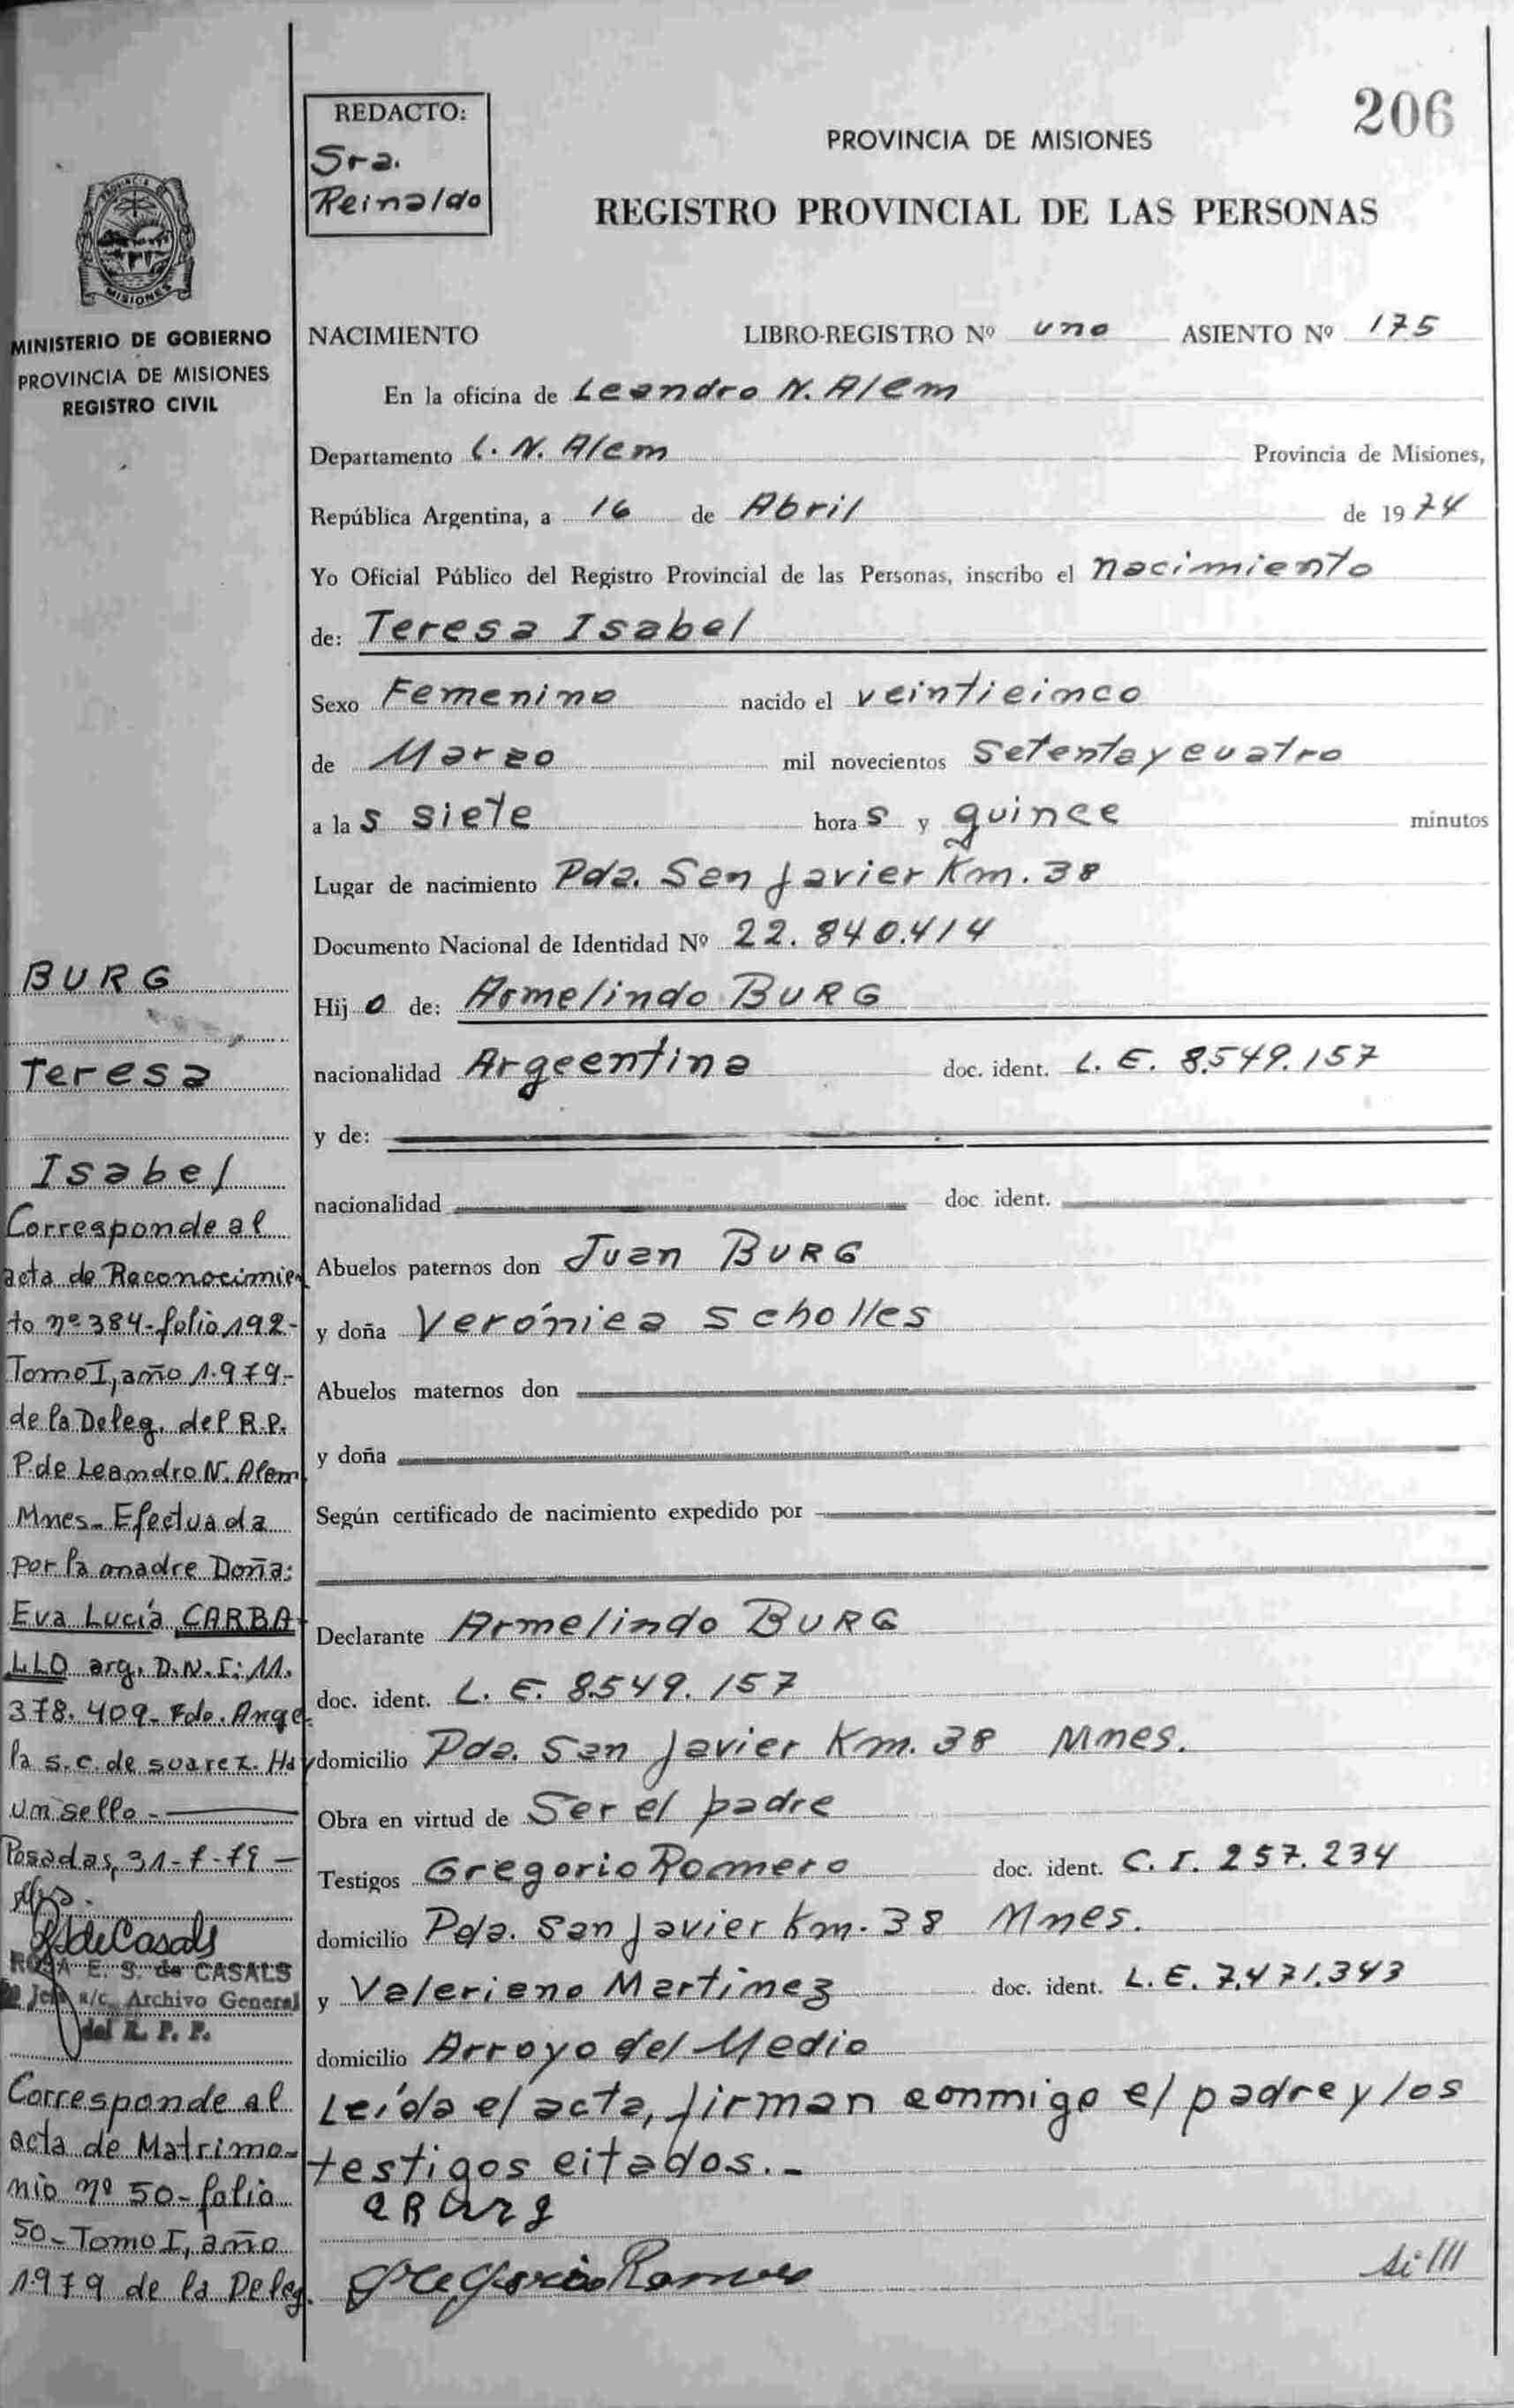 206
REDACTO:
Sra.
Reinaldo
PROVINCIA DE MISIONES
REGISTRO PROVINCIAL DE LAS PERSONAS
PROVINCIA DE
MISIONES
MINISTERIO DE GOBIERNO
PROVINCIA DE MISIONES
REGISTRO CIVIL
NACIMIENTO LIBRO-REGISTRO Nº uno ASIENTO Nº 175
En la oficina de Leandro N. Alem
Departamento L. N. Alem Provincia de Misiones,
República Argentina, a 16 de Abril de 1974
Yo Oficial Público del Registro Provincial de las Personas, inscribo el nacimiento
de: Teresa Isabel
Sexo Femenino nacido el veinticinco
de Marzo mil novecientos setenta y cuatro
a las siete horas y quince minutos
Lugar de nacimiento Pda. San Javier Km. 38
Documento Nacional de Identidad Nº 22.840.414
Hijo de: Armelindo BURG
nacionalidad Argeentina doc. ident. L. E. 8.549.157
y de:
nacionalidad doc. ident.
Abuelos paternos don Juan BURG
y doña Verónica Scholles
Abuelos maternos don
y doña
Según certificado de nacimiento expedido por
Declarante Armelindo BURG
doc. ident. L. E. 8.549.157
domicilio Pda. San Javier Km. 38 Mnes.
Obra en virtud de Ser el padre
Testigos Gregorio Romero doc. ident. C. I. 257.234
domicilio Pda. San Javier Km. 38 Mnes.
y Valeriano Martinez doc. ident. L. E. 7.471.343
domicilio Arroyo del Medio
Leída el acta, firman conmigo el padre y los
testigos citados.-
a Burg
Gregorio Romero
BURG
Teresa
Isabel
Corresponde al
acta de Reconocimien
to nº 384-folio 192-
Tomo I, año 1.979-
de la Deleg. del R.P.
P. de Leandro N. Alem
Mnes- Efectuada
por la madre Doña:
Eva Lucía CARBA-
LLO arg. D.N.I: 11.
378.409- Fdo. Ange
la S.C. de Suarez. Hay
un sello-
Posadas, 31-7-79-
R S de Casals
ROSA E. S. de CASALS
Jefe a/c. Archivo General
del R. P. P.
Corresponde al
acta de Matrimo-
nio nº 50-folio
50-Tomo I, año
1979 de la Deleg.